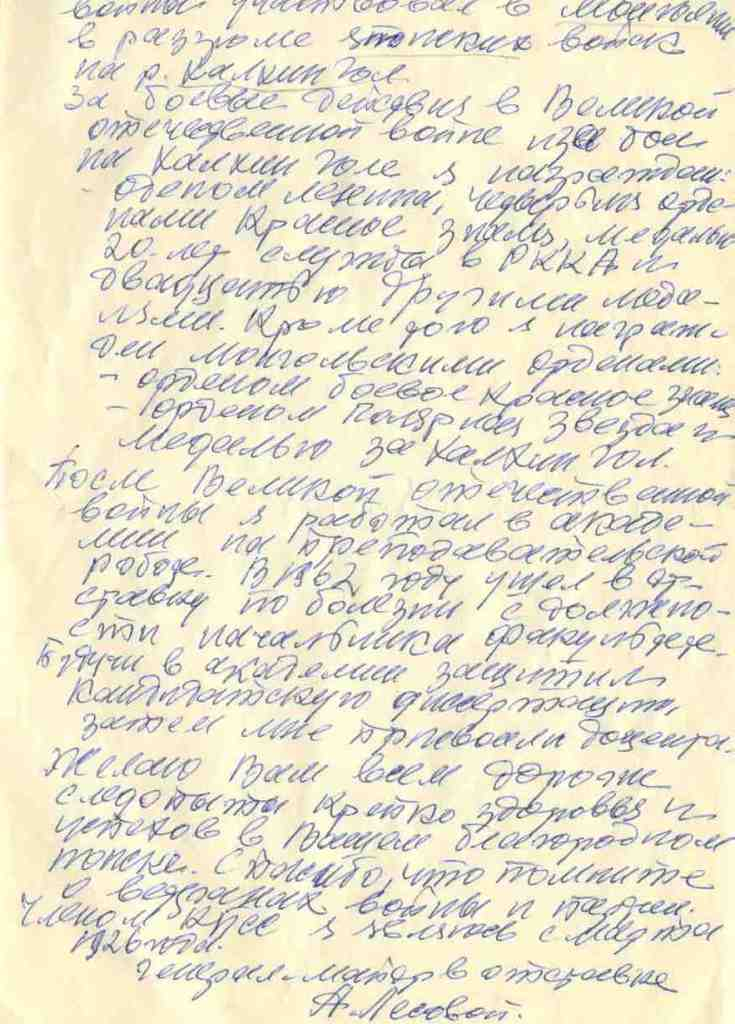 войны участвовал в Монголии
в разгроме японских войск
на р. Халхин Гол.
За боевые действия в Великой
отечественной войне и за бои
на Халхин Голе я награжден:
- орденом Ленина, четырьмя орде-
нами Красное Знамя, медалью
20 лет службы в РККА и
двадцатью другими меда-
лями. Кроме того я награж-
ден монгольскими орденами:
- орденом боевое Красное знамя
- орденом Полярная Звезда и
медалью за Халхин Гол.
После Великой отечественной
войны я работал в акаде-
мии на преподавательской
работе. В 1962 году ушел в от-
ставку по болезни с должно-
сти начальника факультета.
Будучи в академии защитил
кандидатскую диссертацию,
затем мне присвоили доцента.
Желаю Вам всем дорогие
следопыты крепко здоровья и
успехов в Вашем благородном
поиске. Спасибо, что помните
о ветеранах войны и партии.
Членом КПСС я являюсь с марта
1926 года.
генерал-майор в отставке
А. Лесовой.